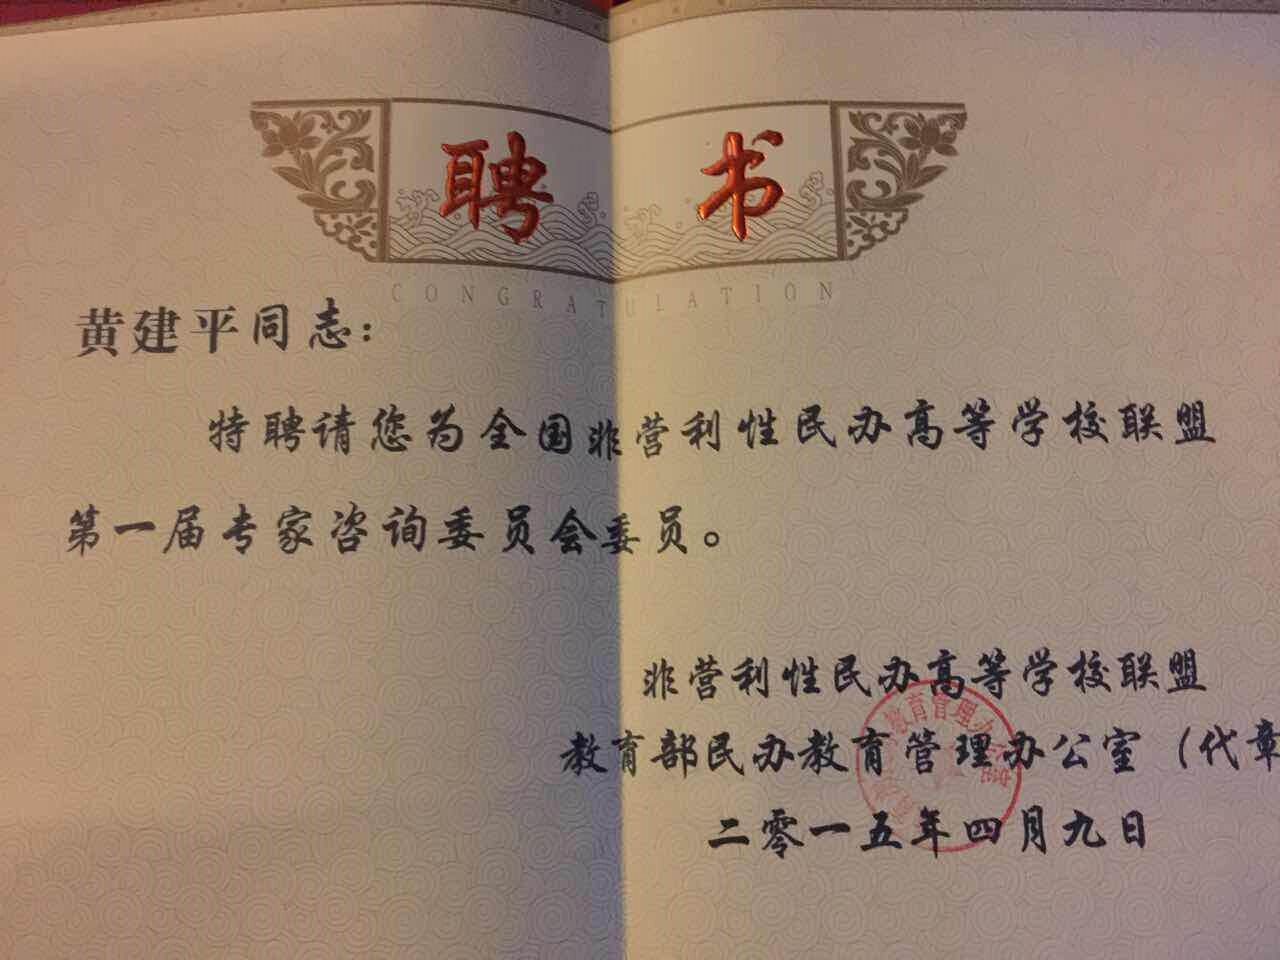 聘书
CONGRATULATION
黄建平同志：
特聘请您为全国非营利性民办高等学校联盟
第一届专家咨询委员会委员。
非营利性民办高等学校联盟
教育部民办教育管理办公室（代章
二零一五年四月九日
教育管理办